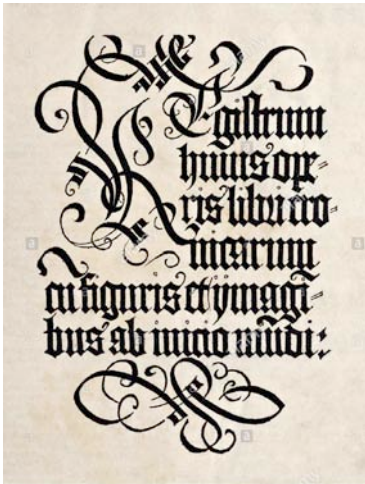 REgistrum
huius ope=
ris libri cro=
nicarum
cū figuris et ymagi=
bus ab inicio mūdi: